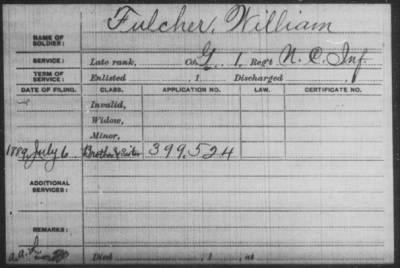 Fulcher, William
NAME OF SOLDIER:
SERVICE: Late rank, Co. G, 1 Reg't N. C. Inf.
TERM OF SERVICE: Enlisted , 1 Discharged , 1
DATE OF FILING. CLASS. APPLICATION NO. LAW. CERTIFICATE NO.
Invalid,
Widow,
Minor,
1889, July 6 Brother & Sister 399,524
ADDITIONAL SERVICES:
REMARKS:
Died , 1 , at